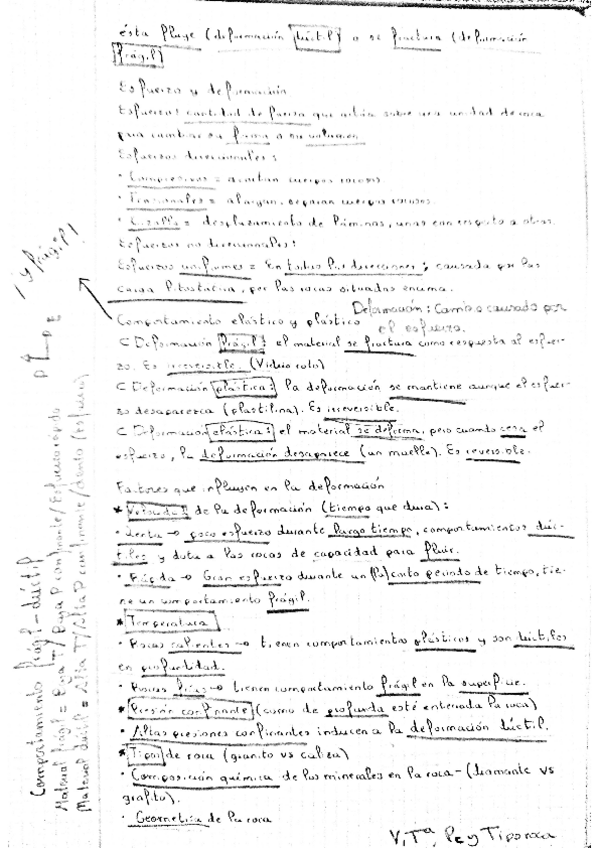 ésta fluye (deformación dúctil) o se fractura (deformación
frágil)
Esfuerzo y deformación
Esfuerzo: cantidad de fuerza que actúa sobre una unidad de roca
para cambiar su forma o su volumen
Esfuerzos direccionales:
· Compresivos = acortan cuerpos rocosos
· Tensionales = alargan, separan cuerpos rocosos.
· Cizalla = desplazamiento de láminas, unas con respecto a otras.
Esfuerzos no direccionales:
Esfuerzos uniformes = En todas las direcciones; causada por las
carga litostática, por las rocas situadas encima.
Deformación: Cambio causado por
el esfuerzo.
Comportamiento elástico y plástico
C Deformación frágil: el material se fractura como respuesta al esfuer-
zo. Es irreversible. (Vidrio roto)
C Deformación plástica: la deformación se mantiene aunque el esfuer-
zo desaparezca (plastilina). Es irreversible.
C Deformación elástica: el material se deforma, pero cuando cesa el
esfuerzo, la deformación desaparece (un muelle). Es reversible.
Factores que influyen en la deformación
* Velocidad de la deformación (tiempo que dura):
· Lenta → poco esfuerzo durante largo tiempo, comportamientos dúc-
tiles y dota a las rocas de capacidad para fluir.
· Rápida → Gran esfuerzo durante un (lo) corto periodo de tiempo, tie-
ne un comportamiento frágil.
* Temperatura
· Rocas calientes → tienen comportamientos plásticos y son dúctiles
en profundidad.
· Rocas frías → tienen comportamiento frágil en la superficie.
* Presión confinante (como de profunda esté enterrada la roca)
· Altas presiones confinantes inducen a la deformación dúctil.
* Tipos de roca (granito vs caliza)
· Composición química de los minerales en la roca - (diamante vs
grafito).
· Geometría de la roca
V, Tª, Pc y Tipo roca
Comportamiento frágil - dúctil
Material frágil = Baja T / Baja P confinante / Esfuerzo rápido
Material dúctil = Alta T / Alta P confinante / lento (esfuerzo)